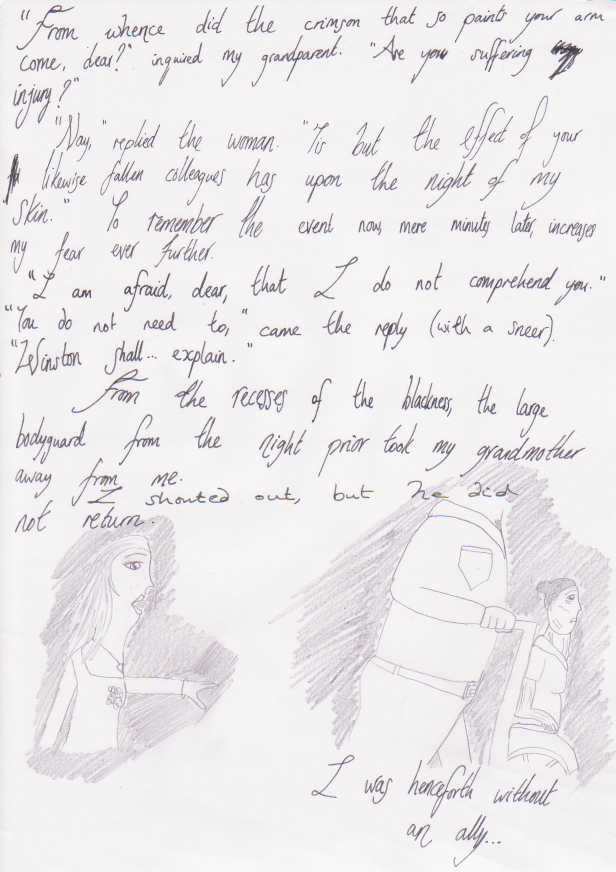 "From whence did the crimson that so paints your arm
come, dear?" inquired my grandparent. "Are you suffering
injury?"
"Nay," replied the woman. "'Tis but the effect of your
likewise fallen colleagues has upon the night of my
skin." To remember the event now, mere minutes later, increases
my fear ever further.
"I am afraid, dear, that I do not comprehend you."
"You do not need to," came the reply (with a sneer).
"Winston shall... explain."
From the recesses of the blackness, the large
bodyguard from the night prior took my grandmother
away from me.
I shouted out, but he did
not return.
I was henceforth without
an ally...